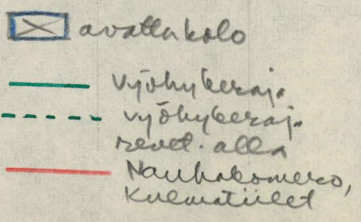 avattu kolo
vyöhykeraja
vyöhykeraja
revet. alla
Nauhakomero,